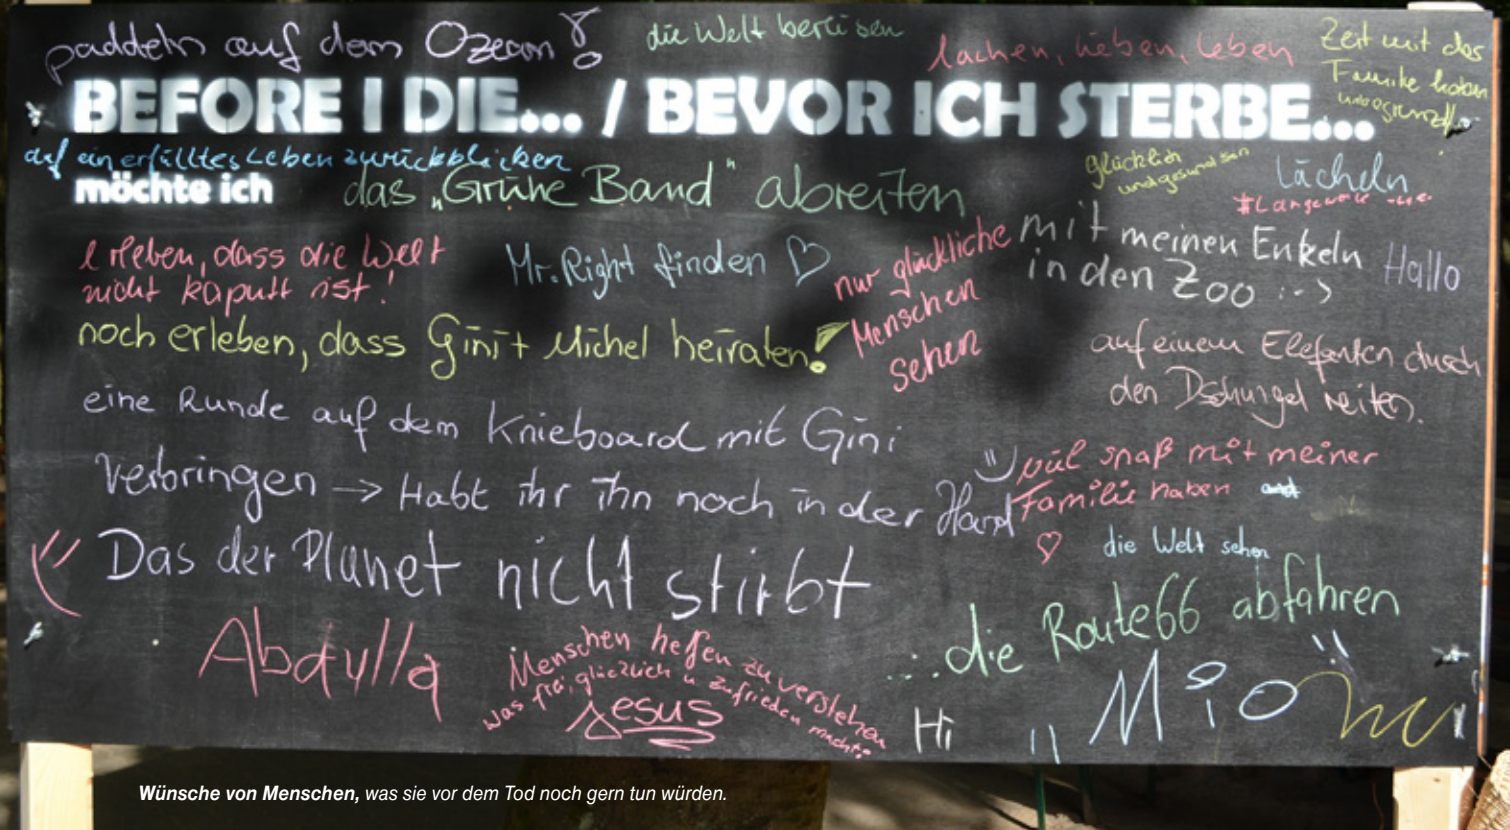 paddeln auf dem Ozean
die Welt bereisen
lachen, lieben, leben
Zeit mit der
Familie haben
BEFORE I DIE... / BEVOR ICH STERBE...
auf ein erfülltes Leben zurückblicken
möchte ich
das „Grüne Band“ abreiten
glücklich
und gesund sein
Lächeln
erleben, dass die Welt
nicht kaputt ist!
Mr. Right finden ♡
nur glückliche
Menschen
sehen
mit meinen Enkeln
in den Zoo :-)
Hallo
noch erleben, dass Gini + Michel heiraten!
auf einem Elefanten durch
den Dschungel reiten.
eine Runde auf dem Knieboard mit Gini
verbringen → Habt ihr ihn noch in der Hand
viel spaß mit meiner
Familie haben
♡
die Welt sehen
Das der Planet nicht stirbt
...die Route66 abfahren
Abdulla
Menschen helfen zu verstehen
was frei, glücklich u. zufrieden macht:
Jesus
Hi
Mio
Wünsche von Menschen, was sie vor dem Tod noch gern tun würden.